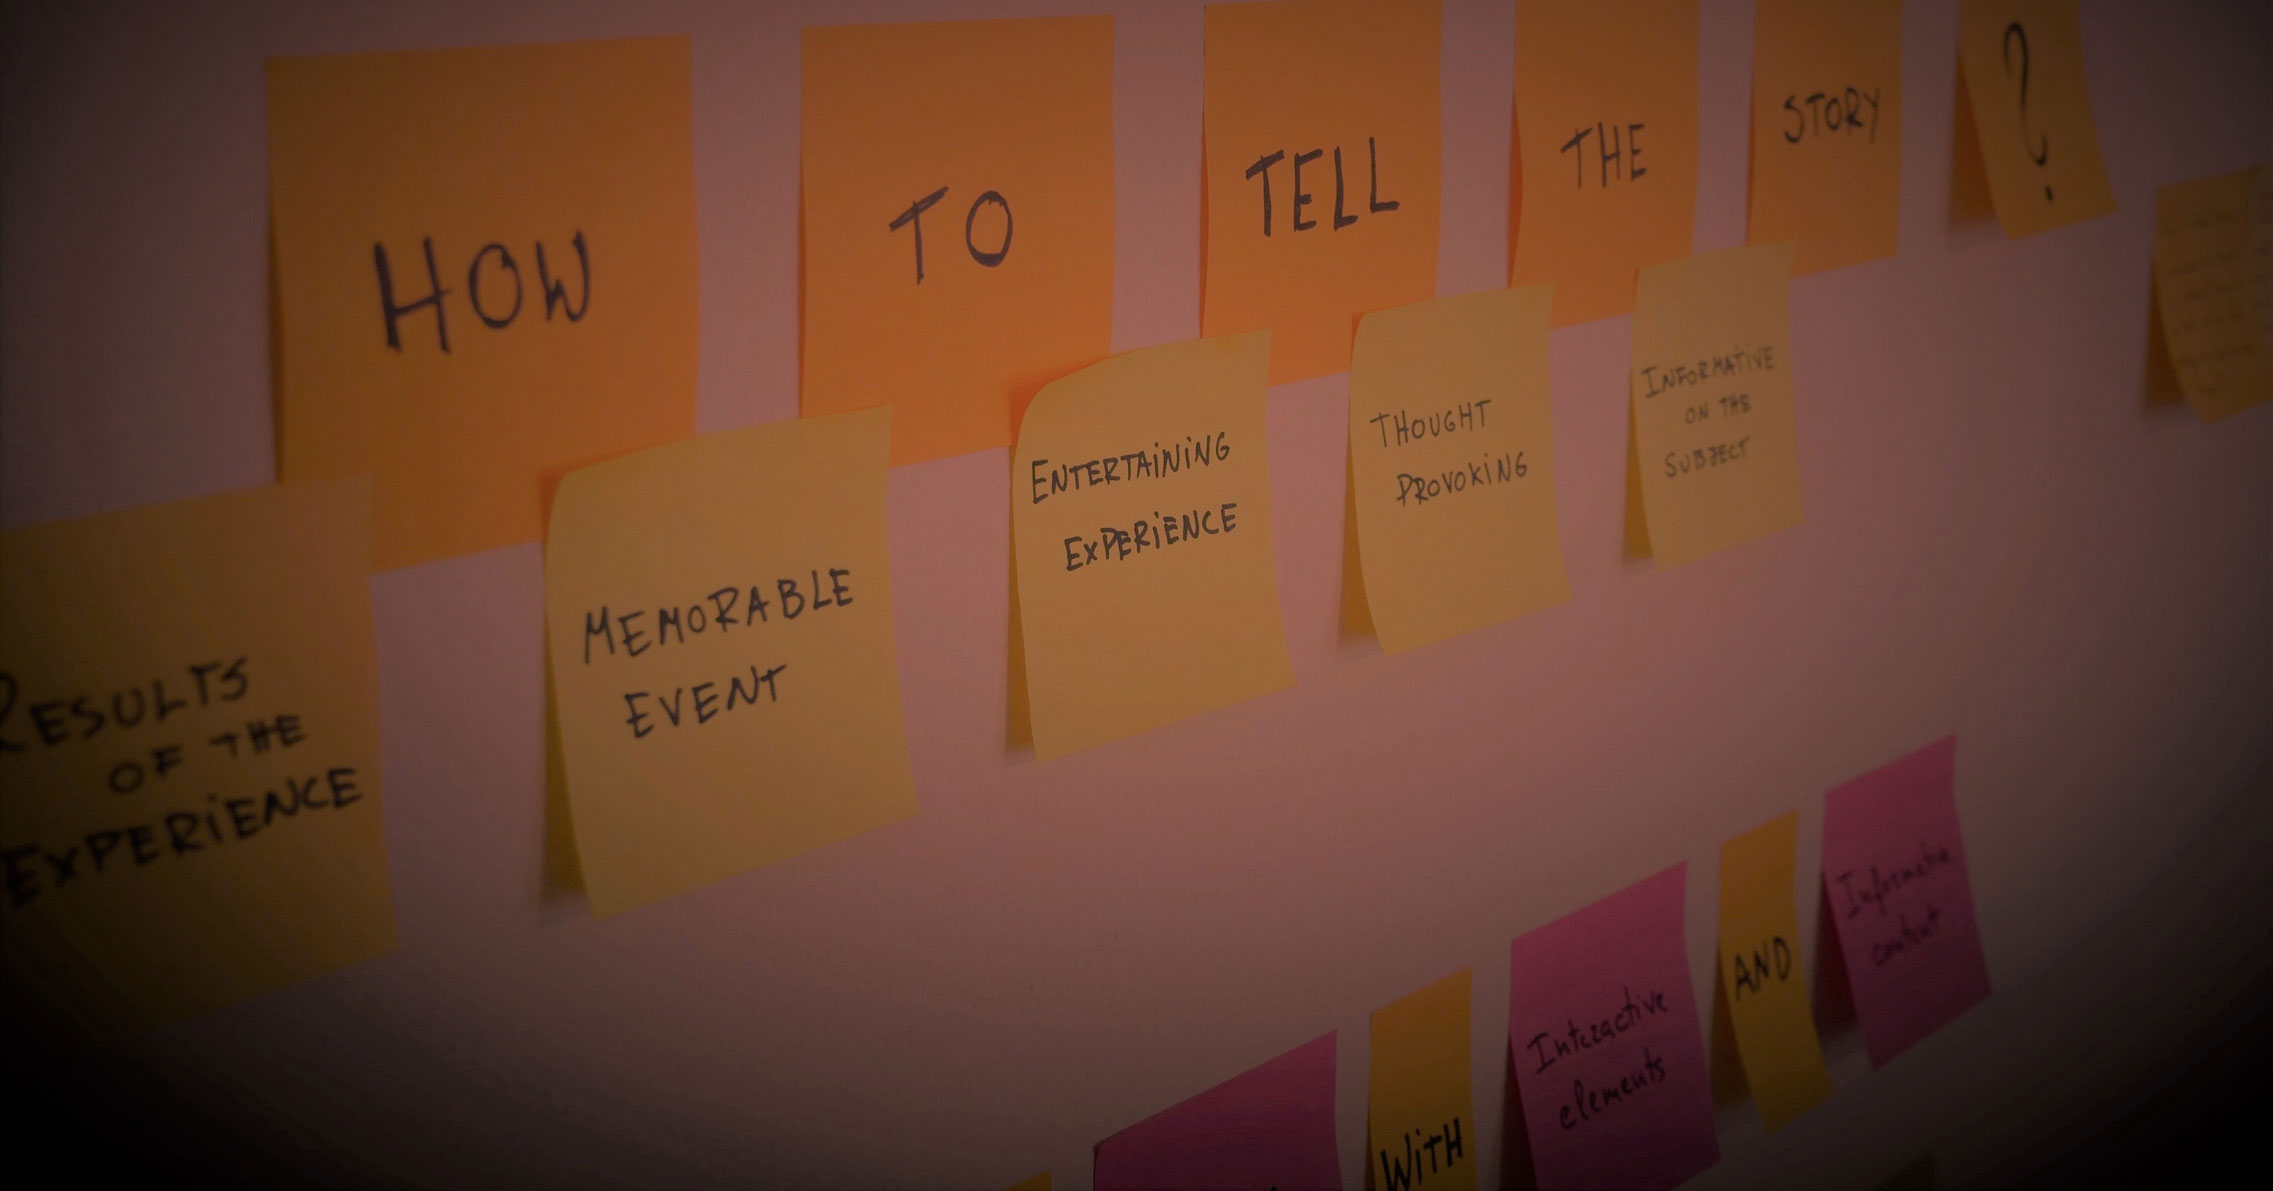 HOW
TO
TELL
THE
STORY
?
RESULTS
OF THE
EXPERIENCE
MEMORABLE
EVENT
ENTERTAINING
EXPERIENCE
THOUGHT
PROVOKING
INFORMATIVE
ON THE
SUBJECT
WITH
Interactive
elements
AND
Informative
content